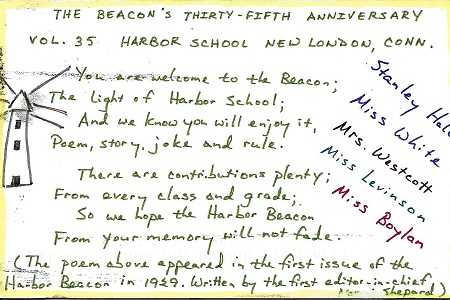 THE BEACON'S THIRTY-FIFTH ANNIVERSARY
VOL. 35 HARBOR SCHOOL NEW LONDON, CONN.
You are welcome to the Beacon;
The light of Harbor School;
And we know you will enjoy it,
Poem, story, joke and rule.
There are contributions plenty;
From every class and grade;
So we hope the Harbor Beacon
From your memory will not fade.
(The poem above appeared in the first issue of the
Harbor Beacon in 1929. Written by the first editor-in-chief
Shepard)
Stanley
Miss White
Mrs. Westcott
Miss Levinson
Miss Boylan